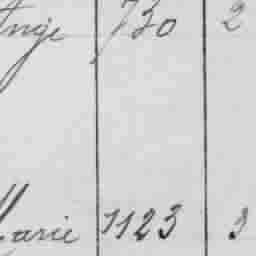 Ange 730 2
Marie 1123 3